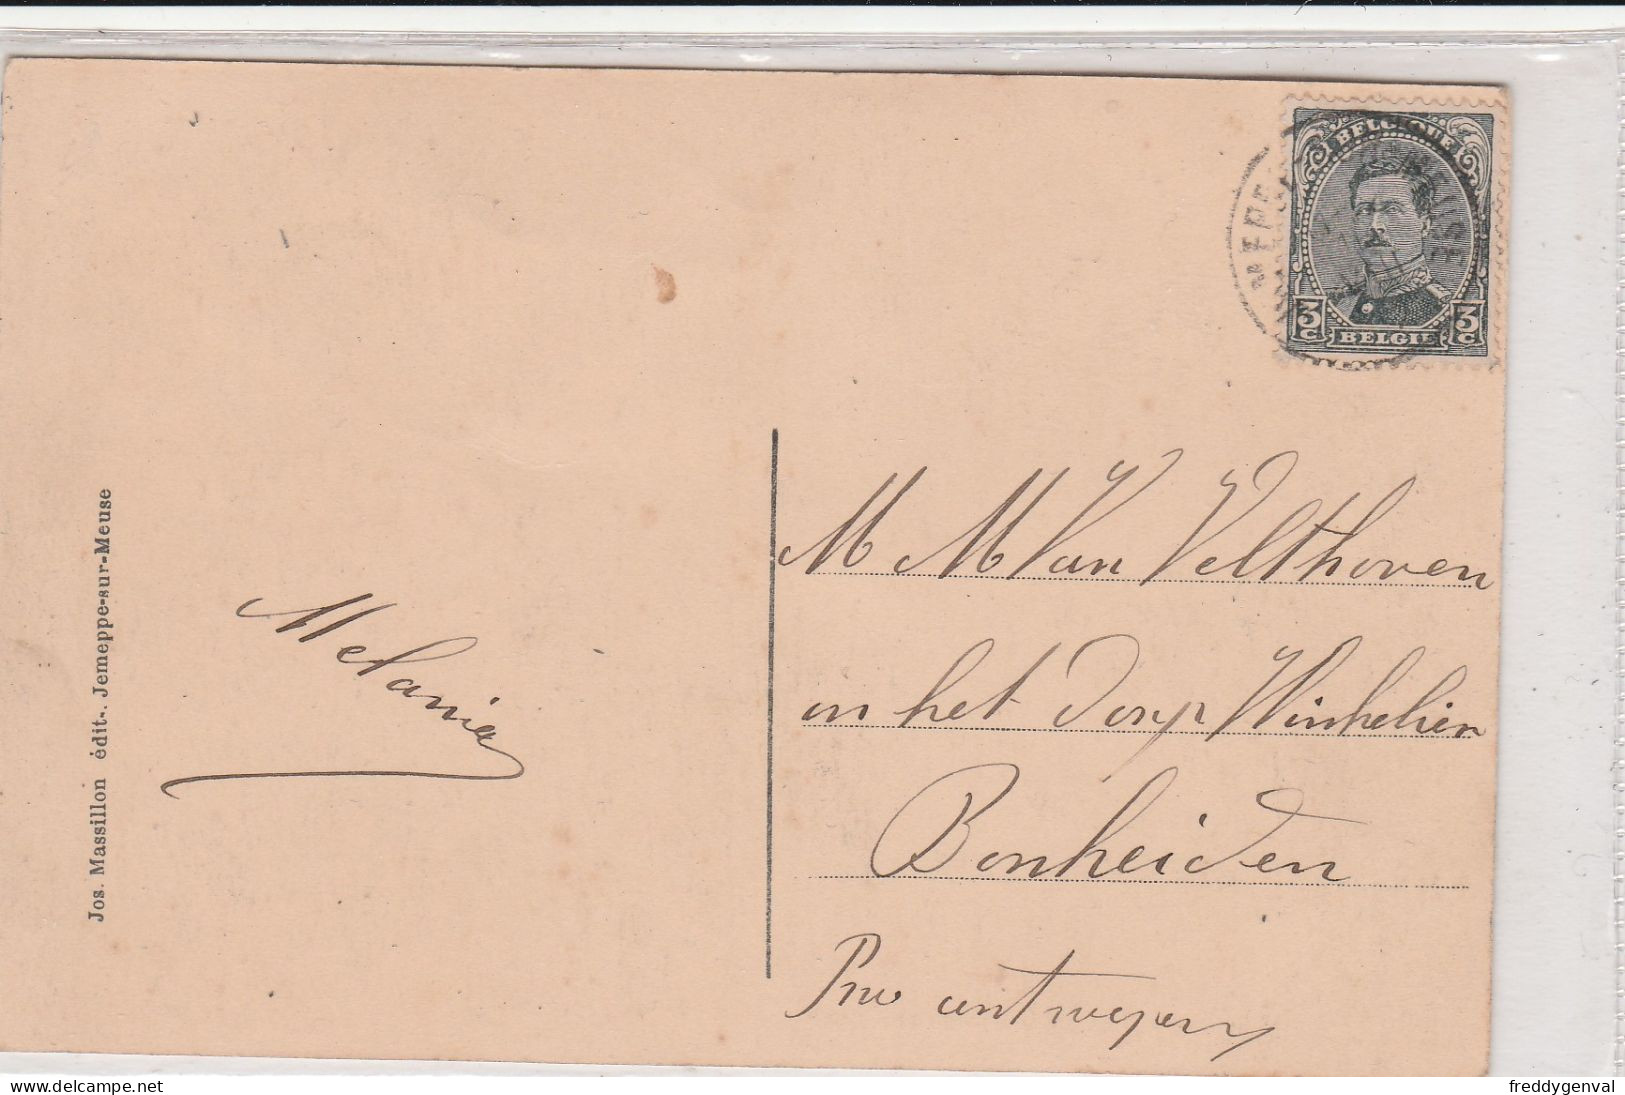 BELGIQUE
3 C BELGIË 3 C
MEUSE
Jos. Massillon édit-. Jemeppe-sur-Meuse
Melania
M M Van Velthoven
in het Dorp Winkelier
Bonheiden
Prov antwerpen
delcampe.net
freddygenval